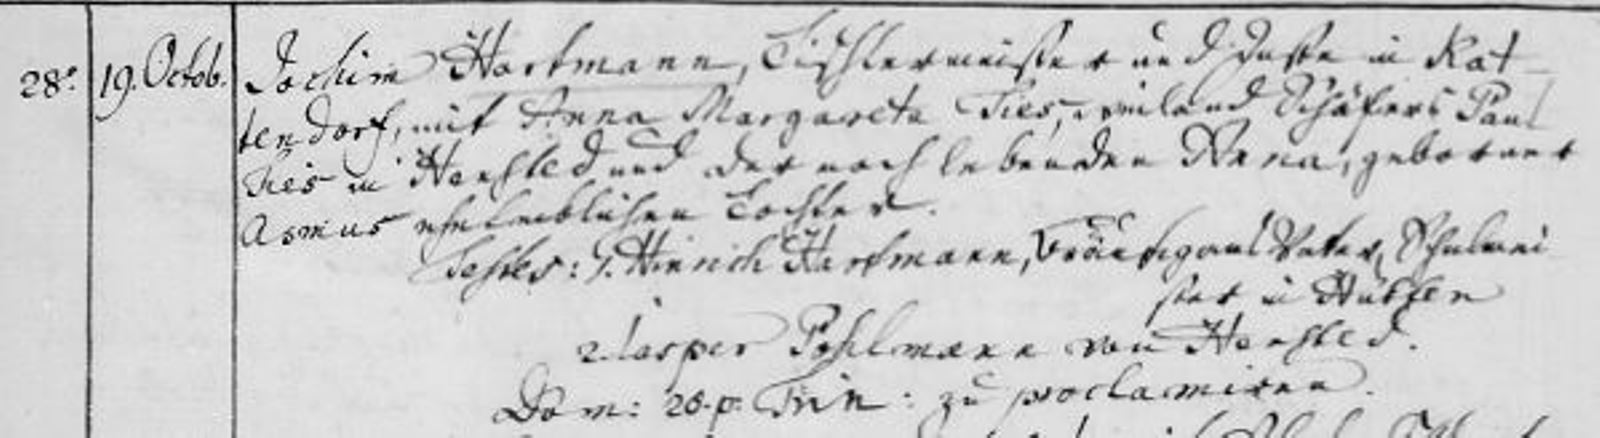 28. 19. Octob. Jochim Hartmann, Tischlermeister und Inste in Kat-
tendorf, mit Anna Margareta Ties, weiland Schäfers Paul
Ties in Henstedt und der noch lebenden Anna, geborner
Asmus eheleiblichen Tochter.
Testes: 1. Hinrich Hartmann, Bräutigams Vater, Schulmei-
ster in Hüttzen
2. Jasper Pohlmann von Henstedt.
Dom: 20. p. Trin: zu proclamiren.